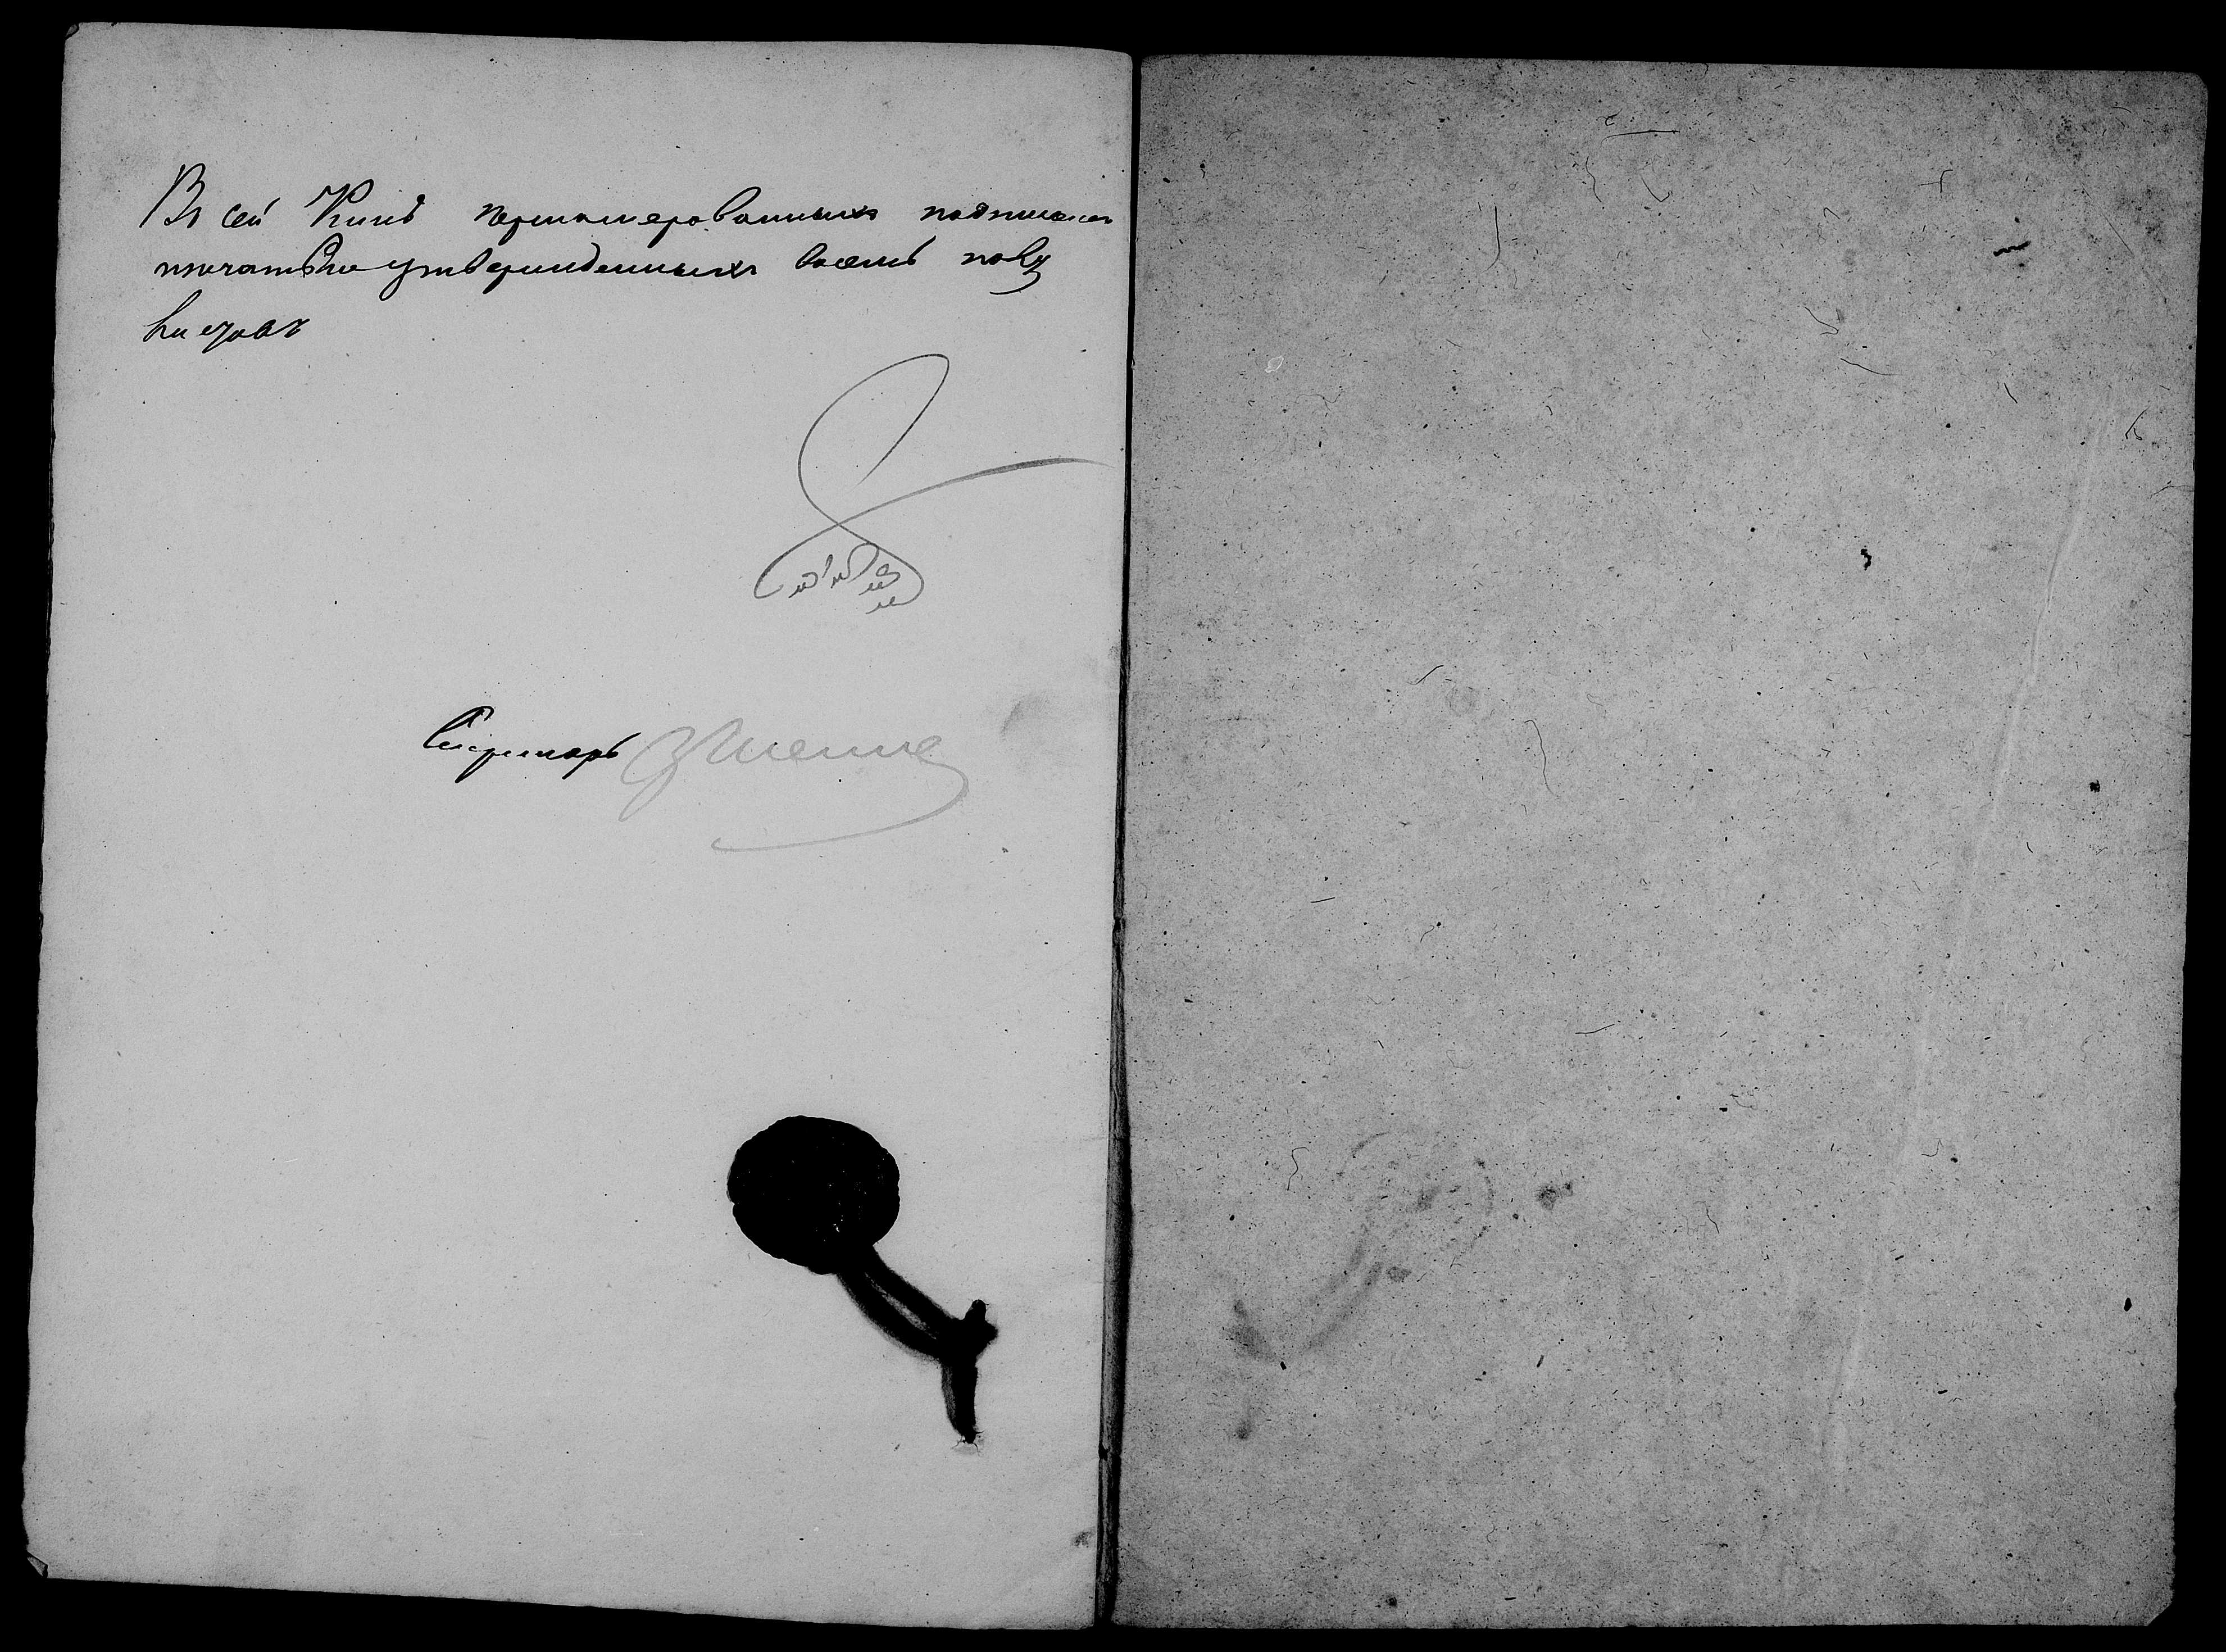 Въ сей Книгѣ перенумерованныхъ подписью и
печатью утвержденныхъ восемь полу
листовъ
Секретарь